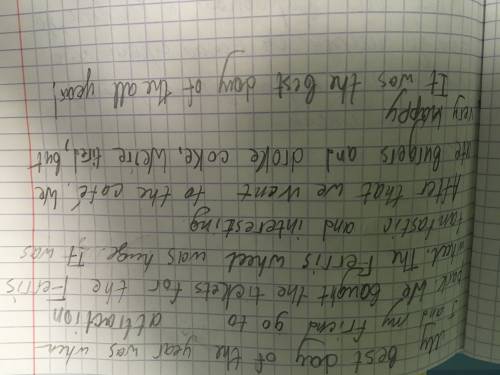 My best day of the year was when
I and my friend go to attraction
park. We baught the tickets for the Ferris
wheel. The Ferris wheel was huge. It was
fantastic and interesting
After that we went to the café. We
ate burgers and droke coke. We're tird, but
very happy
It was the best day of the all year!